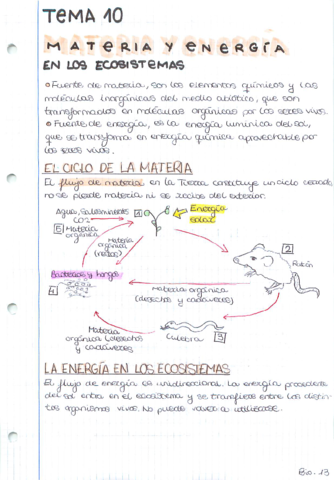 TEMA 10
MATERIA Y ENERGÍA
EN LOS ECOSISTEMAS
Fuente de materia, son los elementos químicos y las
moléculas inorgánicas del medio abiótico, que son
transformados en moléculas orgánicas por los seres vivos.
Fuente de energía, es la energía lumínica del sol,
que se transforma en energía química aprovechable por
los seres vivos.
EL CICLO DE LA MATERIA
El flujo de materia en la Tierra constituye un ciclo cerrado
no se pierde materia ni se recibe del exterior.
Agua, sales minerales
CO2
1
Energía
solar
5 Materia
orgánica
Materia
orgánica
(restos)
2
Ratón
Bacterias y hongos
4
Materia orgánica
(desechos y cadáveres)
Materia
orgánica (desechos
y cadáveres)
Culebra
3
LA ENERGÍA EN LOS ECOSISTEMAS
El flujo de energía es unidireccional. La energía procedente
del sol entra en el ecosistema y se transfiere entre los distin-
tos organismos vivos. No puede volver a utilizarse.
Bio-13